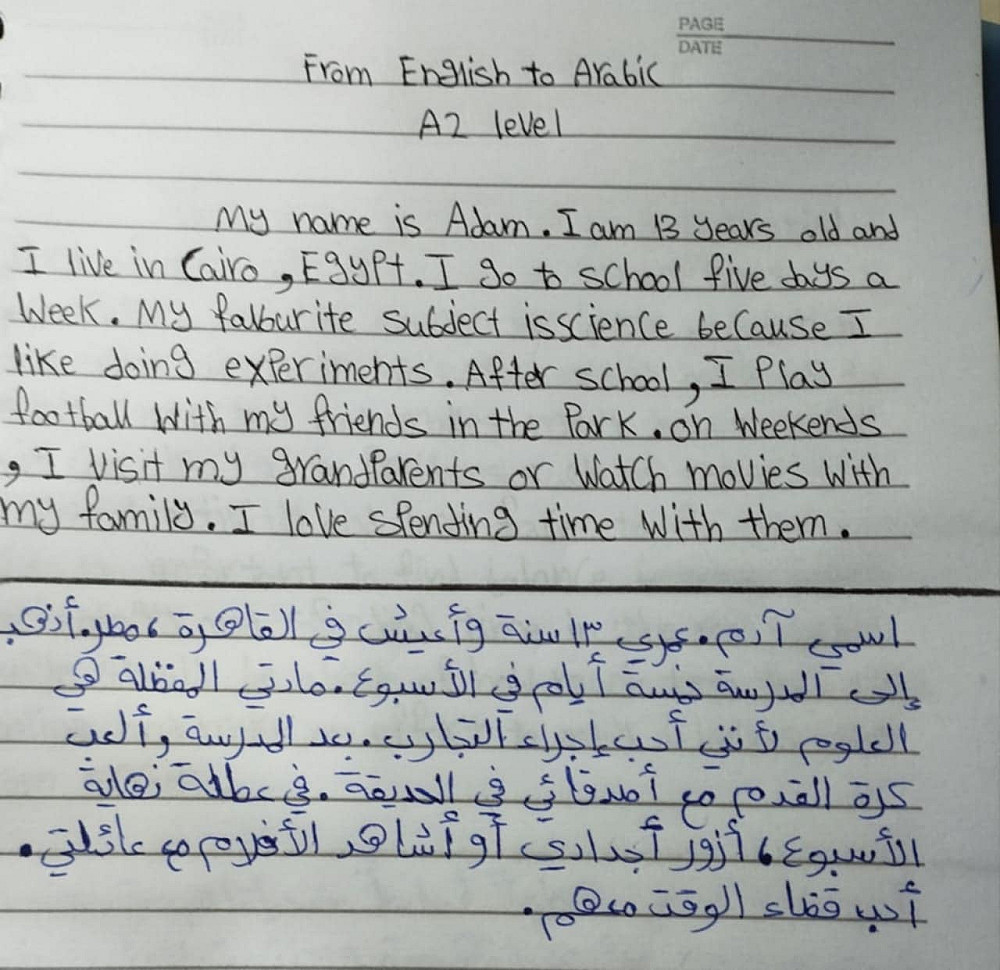 PAGE
DATE
From English to Arabic
A2 level
My name is Adam. I am 13 years old and
I live in Cairo, Egypt. I go to school five days a
Week. My favburite subject isscience because I
like doing experiments. After school, I Play
football With my friends in the Park. on Weekends
, I Visit my grandparents or Watch movies With
my family. I love spending time With them.
اسمي آدم. عمري ١٣ سنة وأعيش في القاهرة، مصر. أذهب
إلى المدرسة خمسة أيام في الأسبوع. مادتي المفضلة هي
العلوم لأنني أحب إجراء التجارب. بعد المدرسة، ألعب
كرة القدم مع أصدقائي في الحديقة. في عطلة نهاية
الأسبوع، أزور أجدادي أو أشاهد الأفلام مع عائلتي.
أحب قضاء الوقت معهم.